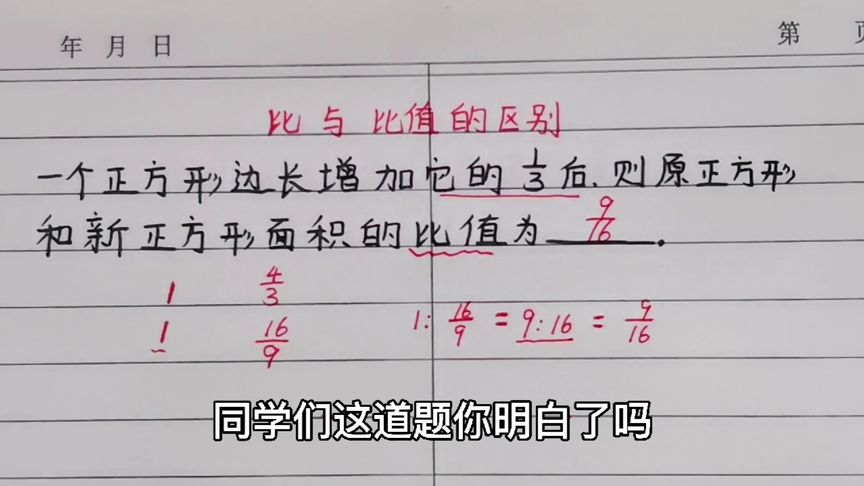 年 月 日 第 页
比与比值的区别
一个正方形边长增加它的 1/3 后,则原正方形
和新正方形面积的比值为 9/16 .
1 4/3
1 16/9 1: 16/9 = 9:16 = 9/16
同学们这道题你明白了吗